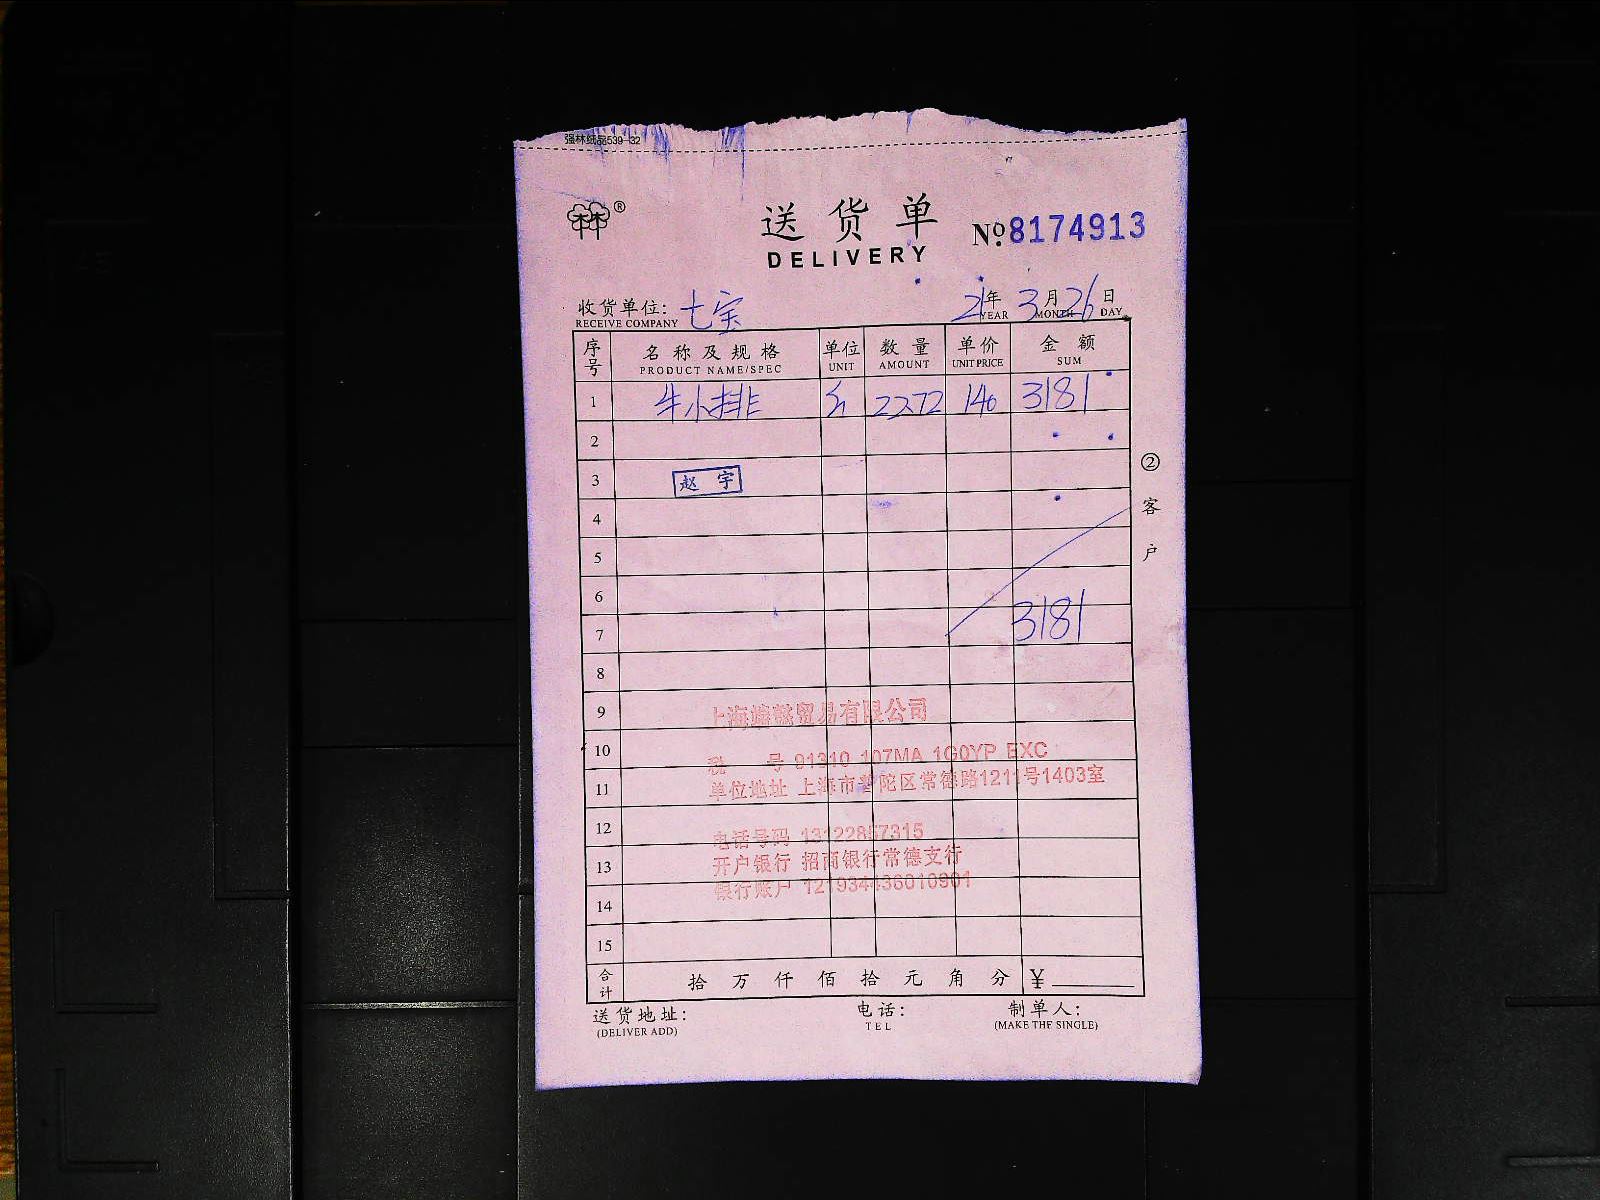 强林纸品539-32
®
送货单
№ 8174913
DELIVERY
收货单位: 七宝 21年 3月 26日
RECEIVE COMPANY YEAR MONTH DAY
序号 名称及规格 单位 数量 单价 金额
PRODUCT NAME/SPEC UNIT AMOUNT UNIT PRICE SUM
1 牛小排 2272 140 3181
2
3 赵宇
4
5
6
7 3181
8
9 上海 贸易有限公司
10 税号 91310 107MA 1G0YP EXC
11 单位地址 上海市普陀区常德路1211号1403室
12 电话号码
13 开户银行 招商银行常德支行
14 银行账户
15
合计 拾 万 仟 佰 拾 元 角 分 ¥
送货地址: 电话: 制单人:
(DELIVER ADD) TEL (MAKE THE SINGLE)
②客户